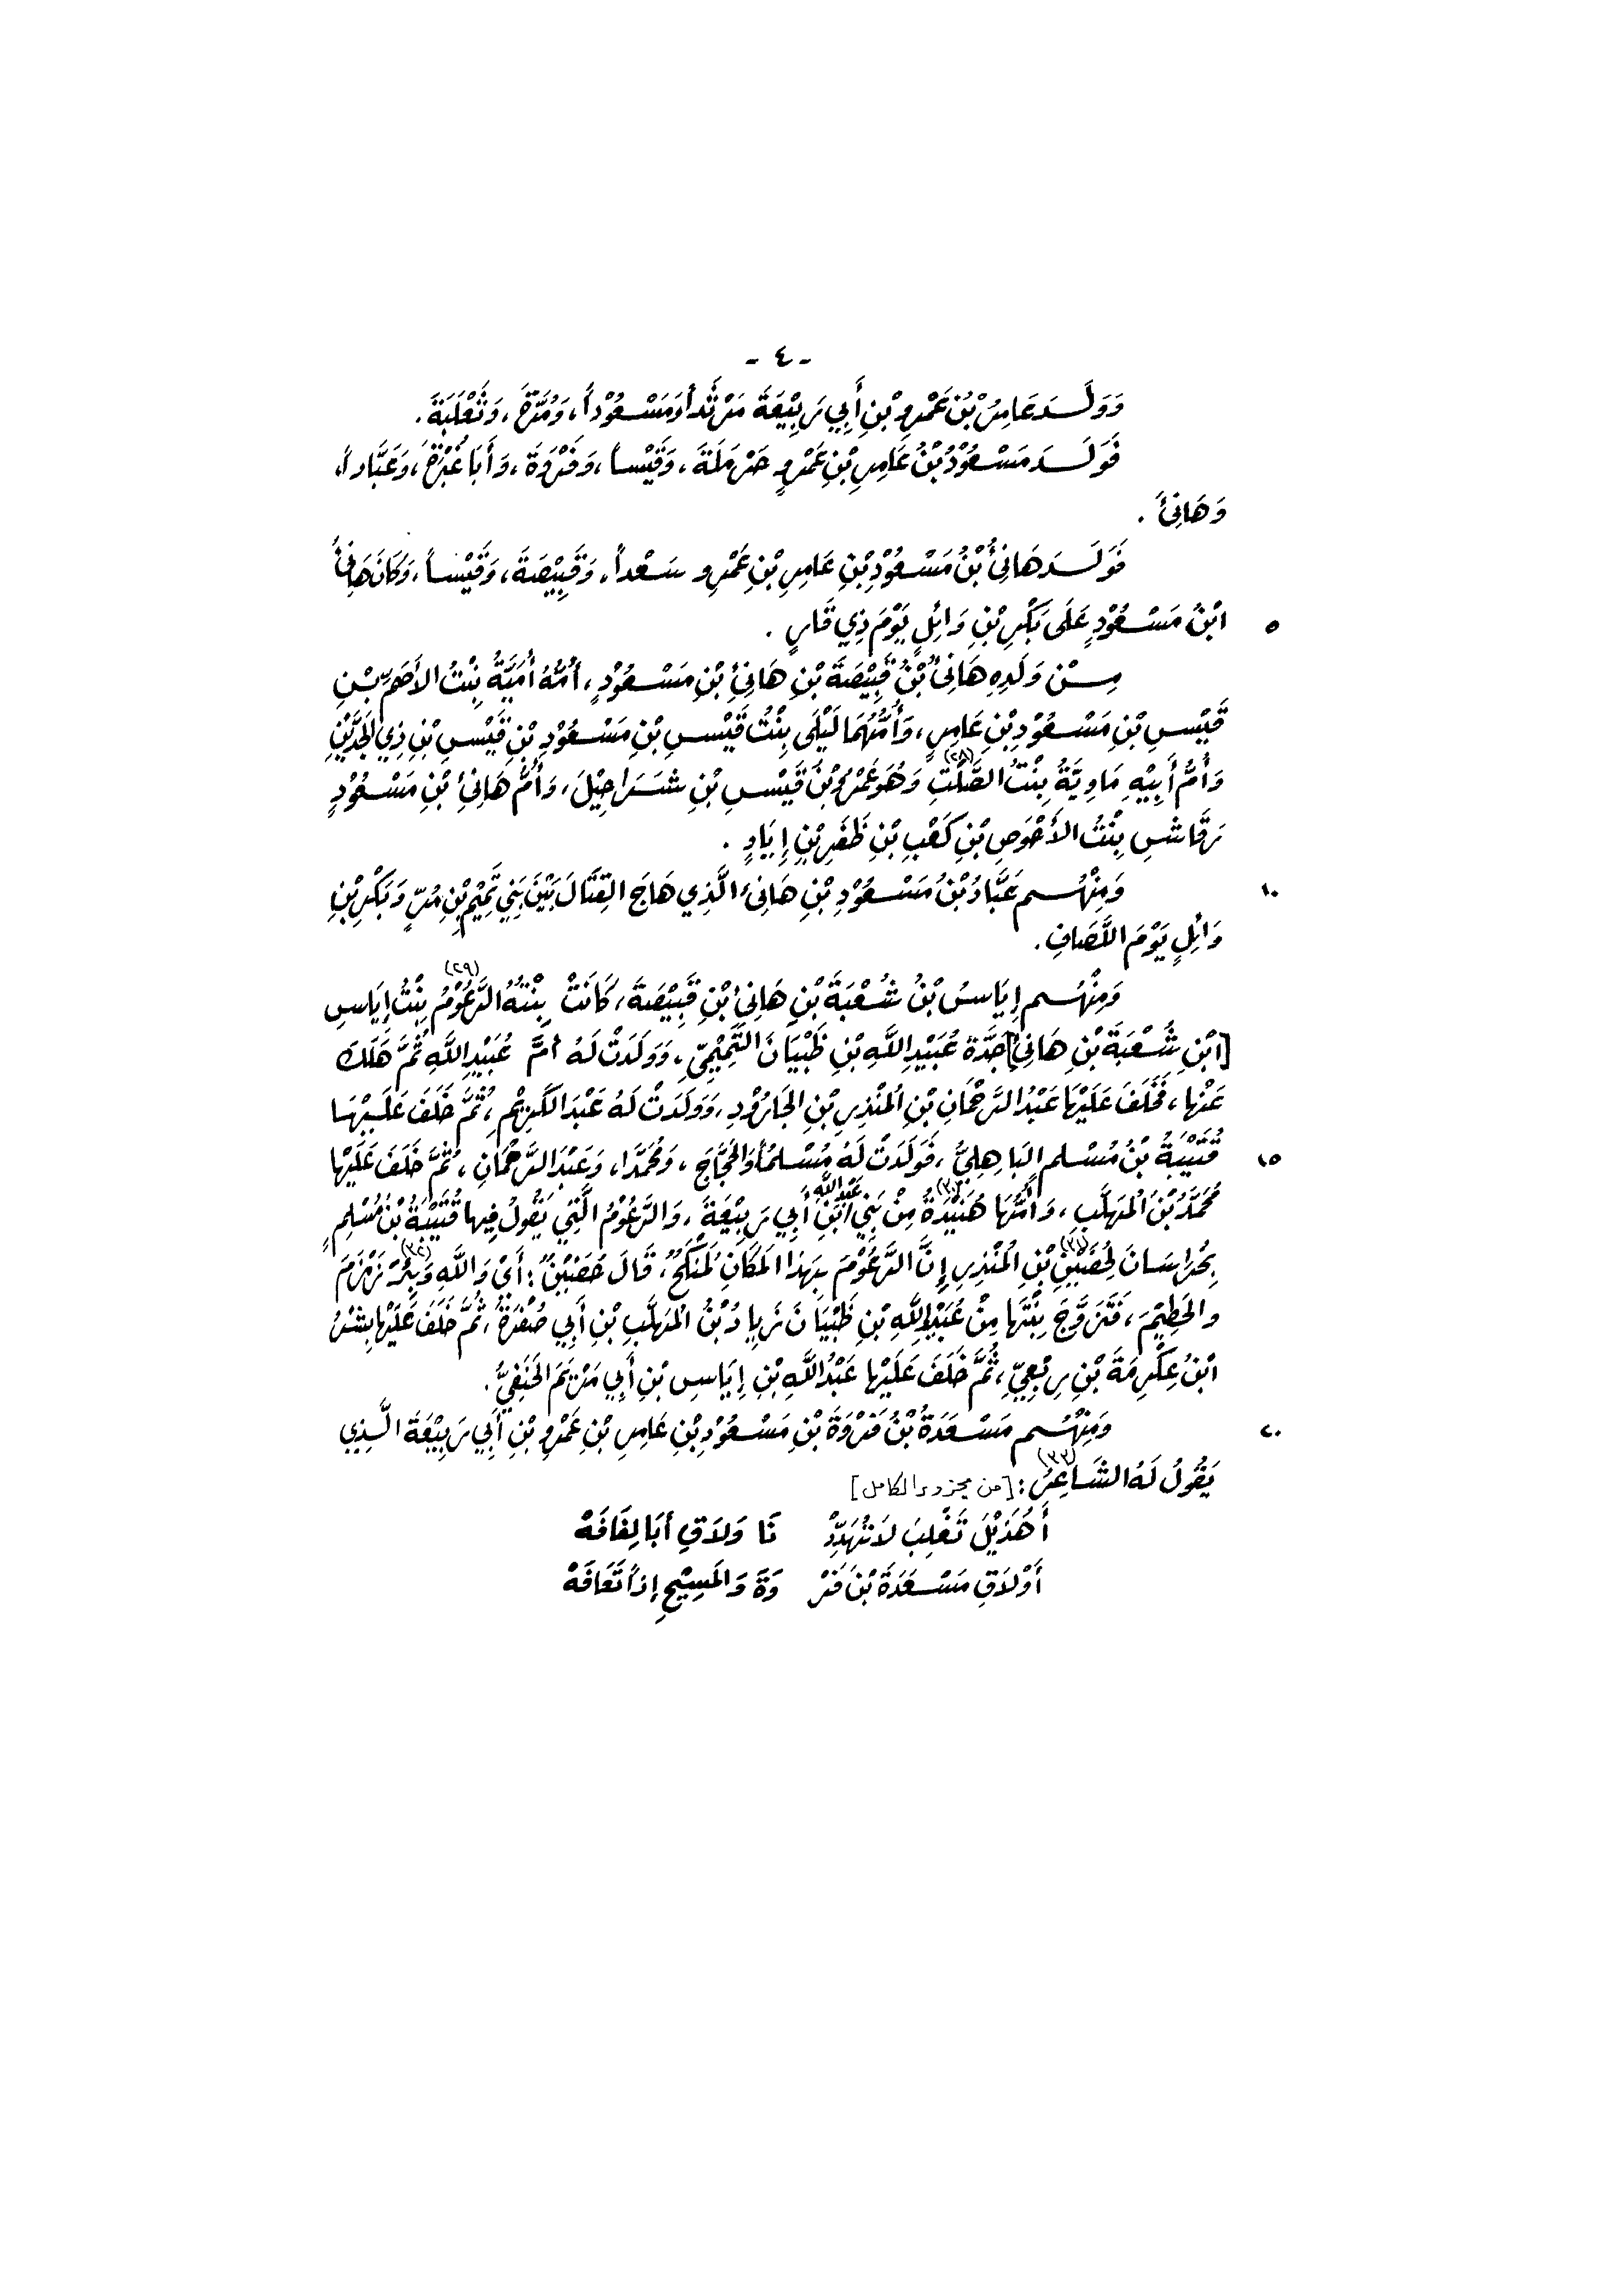 - ٤ -
وَوَلَدَ عَامِرُ بْنُ عَمْرِو بْنِ أَبِي رَبِيْعَةَ مَرْثَداً وَمَسْعُوْداً، وَمُرَّةَ، وَثَعْلَبَةَ.
فَوَلَدَ مَسْعُوْدُ بْنُ عَامِرِ بْنِ عَمْرٍو حَرْمَلَةَ، وَقَيْساً، وَفَرْوَةَ، وَأَبَا عَزَّةَ، وَعَبَّاداً،
وَهَانِئً.
فَوَلَدَ هَانِئُ بْنُ مَسْعُوْدِ بْنِ عَامِرِ بْنِ عَمْرٍو سَعْداً، وَقَبِيْصَةَ، وَقَيْساً، وَكَانَ هَانِئُ
٥ ابْنُ مَسْعُوْدٍ عَلَى بَكْرِ بْنِ وَائِلٍ يَوْمَ ذِي قَارٍ.
مِنْ وَلَدِهِ هَانِئُ بْنُ قَبِيْصَةَ بْنِ هَانِئِ بْنِ مَسْعُوْدٍ، أُمُّهُ أُمَيَّةُ بِنْتُ الأَصَمِّ بْنِ
قَيْسِ بْنِ مَسْعُوْدِ بْنِ عَامِرٍ، وَأُمُّهُمَا لَيْلَى بِنْتُ قَيْسِ بْنِ مَسْعُوْدِ بْنِ قَيْسِ بْنِ ذِي الجَدَّيْنِ
وَأُمُّ أَبِيْهِ مَاوِيَّةُ بِنْتُ الصَّلْتِ (٢٨) وَهُوَ عَمْرُو بْنُ قَيْسِ بْنِ شَرَاحِيْلَ، وَأُمُّ هَانِئِ بْنِ مَسْعُوْدٍ
رَقَاشِ بِنْتُ الأَحْوَصِ بْنِ كَعْبِ بْنِ ظَفَرِ بْنِ إِيَادٍ.
١٠ وَمِنْهُم عَبَّادُ بْنُ مَسْعُوْدِ بْنِ هَانِئ الَّذِي هَاجَ القِتَالَ بَيْنَ بَنِي تَمِيْمِ بْنِ مُرٍّ وَبَكْرِ بْنِ
وَائِلٍ يَوْمَ اللَّصَافِ.
وَمِنْهُم إِيَاسُ بْنُ شُعْبَةَ بْنِ هَانِئِ بْنِ قَبِيْصَةَ، كَانَتْ بِنْتُهُ الزَّعُوْمُ (٢٩) بِنْتُ إِيَاسِ
[ابْنِ شُعْبَةَ بْنِ هَانِئٍ] جَدَّةَ عُبَيْدِ اللَّهِ بْنِ ظَبْيَانَ التَّمِيْمِيِّ، وَوَلَدَتْ لَهُ أُمَّ عُبَيْدِ اللَّهِ ثُمَّ هَلَكَ
عَنْها، فَخَلَفَ عَلَيْهَا عَبْدُ الرَّحْمَانِ بْنِ المُنْذِرِ بْنِ الجَارُوْدِ، وَوَلَدَتْ لَهُ عَبْدَ الكَرِيْمِ، ثُمَّ خَلَفَ عَلَيْهَا
١٥ قُتَيْبَةُ بْنُ مُسْلِم البَاهِلِيُّ، فَوَلَدَتْ لَهُ مُسْلِماً وَالحَجَّاجَ، وَمُحَمَّدا، وَعَبْدَ الرَّحْمَانِ، ثُمَّ خَلَفَ عَلَيْها
مُحَمَّدُ بْنَ المُهَلَّبِ، وَأُمُّهَا هُنَيْدَةُ (٣٠) مِنْ بَنِي عَبْدِ اللَّهِ ابْنِ أَبِي رَبِيْعَةَ، وَالزَّعُوْمُ الَّتِي يَقُولُ فِيها قُتَيْبَةُ بْنُ مُسْلِمٍ
بِخُرَاسَانَ لِحُضَيْنِ (٣١) بْنِ المُنْذِرِ إِنَّ الزَّعُوْمَ بِهَذا المَكَانِ لَمَنْكَحٌ، قَالَ حُضَيْنٌ: أَيْ وَاللَّهِ وَبِئْرَ (٣٢) زَمْزَمَ
والحَطِيْمَ، فَتَزَوَّجَ بِنْتَها مِنْ عُبَيْدِ اللَّهِ بْنِ ظَبْيَانَ زِيادُ بْنُ المُهَلَّبِ بْنِ أَبِي صُفْرَةَ، ثُمَّ خَلَفَ عَلَيْها بِشْرُ
ابْنُ عِكْرِمَةَ بْنِ رِبْعِيٍّ، ثُمَّ خَلَفَ عَلَيْها عَبْدُ اللَّهِ بْنِ إِيَاسِ بْنِ أَبِي مَرْيَمَ الحَنَفِيُّ.
٢٠ وَمِنْهُم مَسْعَدَةُ بْنُ فَرْوَةَ بْنِ مَسْعُوْدِ بْنِ عَامِرِ بْنِ عَمْرِو بْنِ أَبِي رَبِيْعَةَ الَّذِي
يَقُولُ لَهُ الشَّاعِرُ (٣٣): [من مجزوء الكامل]
أَهُذَيْلَ تَغْلِبَ لاَ تُهَدِّدْ نَا وَلاَقِ أَبَا لِفَافَهْ
أَوْ لاَقِ مَسْعَدَةَ بْنَ فَرْ وَةَ وَالمَسِيْحِ إِذاً تَعَافَهْ